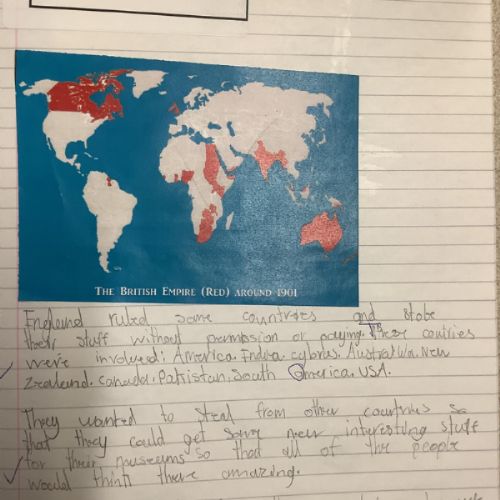 THE BRITISH EMPIRE (RED) AROUND 1901
England ruled some countries and stole
their stuff without permission or paying. These contries
were involved: America. India. cybrus. Australia. New
Zealand. Canada. Pakistan. South America. USA.
They wanted to steal from other countries so
that they could get some new interesting stuff
for their museums so that all of the people
would think there amazing.